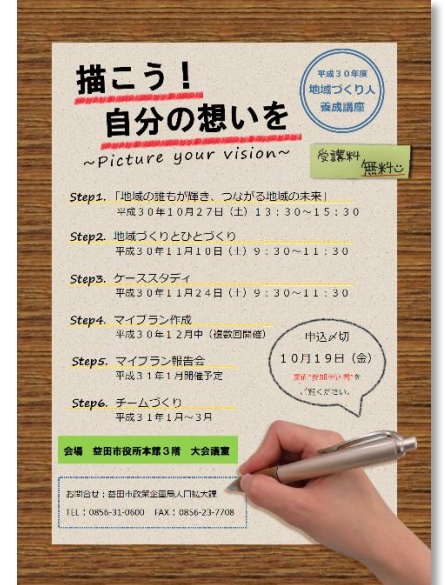 描こう！
自分の想いを
~Picture your vision~
平成３０年度
地域づくり人
養成講座
受講料
無料
Step1. 「地域の誰もが輝き、つながる地域の未来」
平成３０年１０月２７日（土）１３：３０～１５：３０
Step2. 地域づくりとひとづくり
平成３０年１１月１０日（土）９：３０～１１：３０
Step3. ケーススタディ
平成３０年１１月２４日（土）９：３０～１１：３０
Step4. マイプラン作成
平成３０年１２月中（複数回開催）
Step5. マイプラン報告会
平成３１年１月開催予定
Step6. チームづくり
平成３１年１月～３月
申込〆切
１０月１９日（金）
裏面“参加申込書”を
ご覧ください。
会場　益田市役所本館３階　大会議室
お問合せ：益田市政策企画局人口拡大課
TEL：0856-31-0600　FAX：0856-23-7708